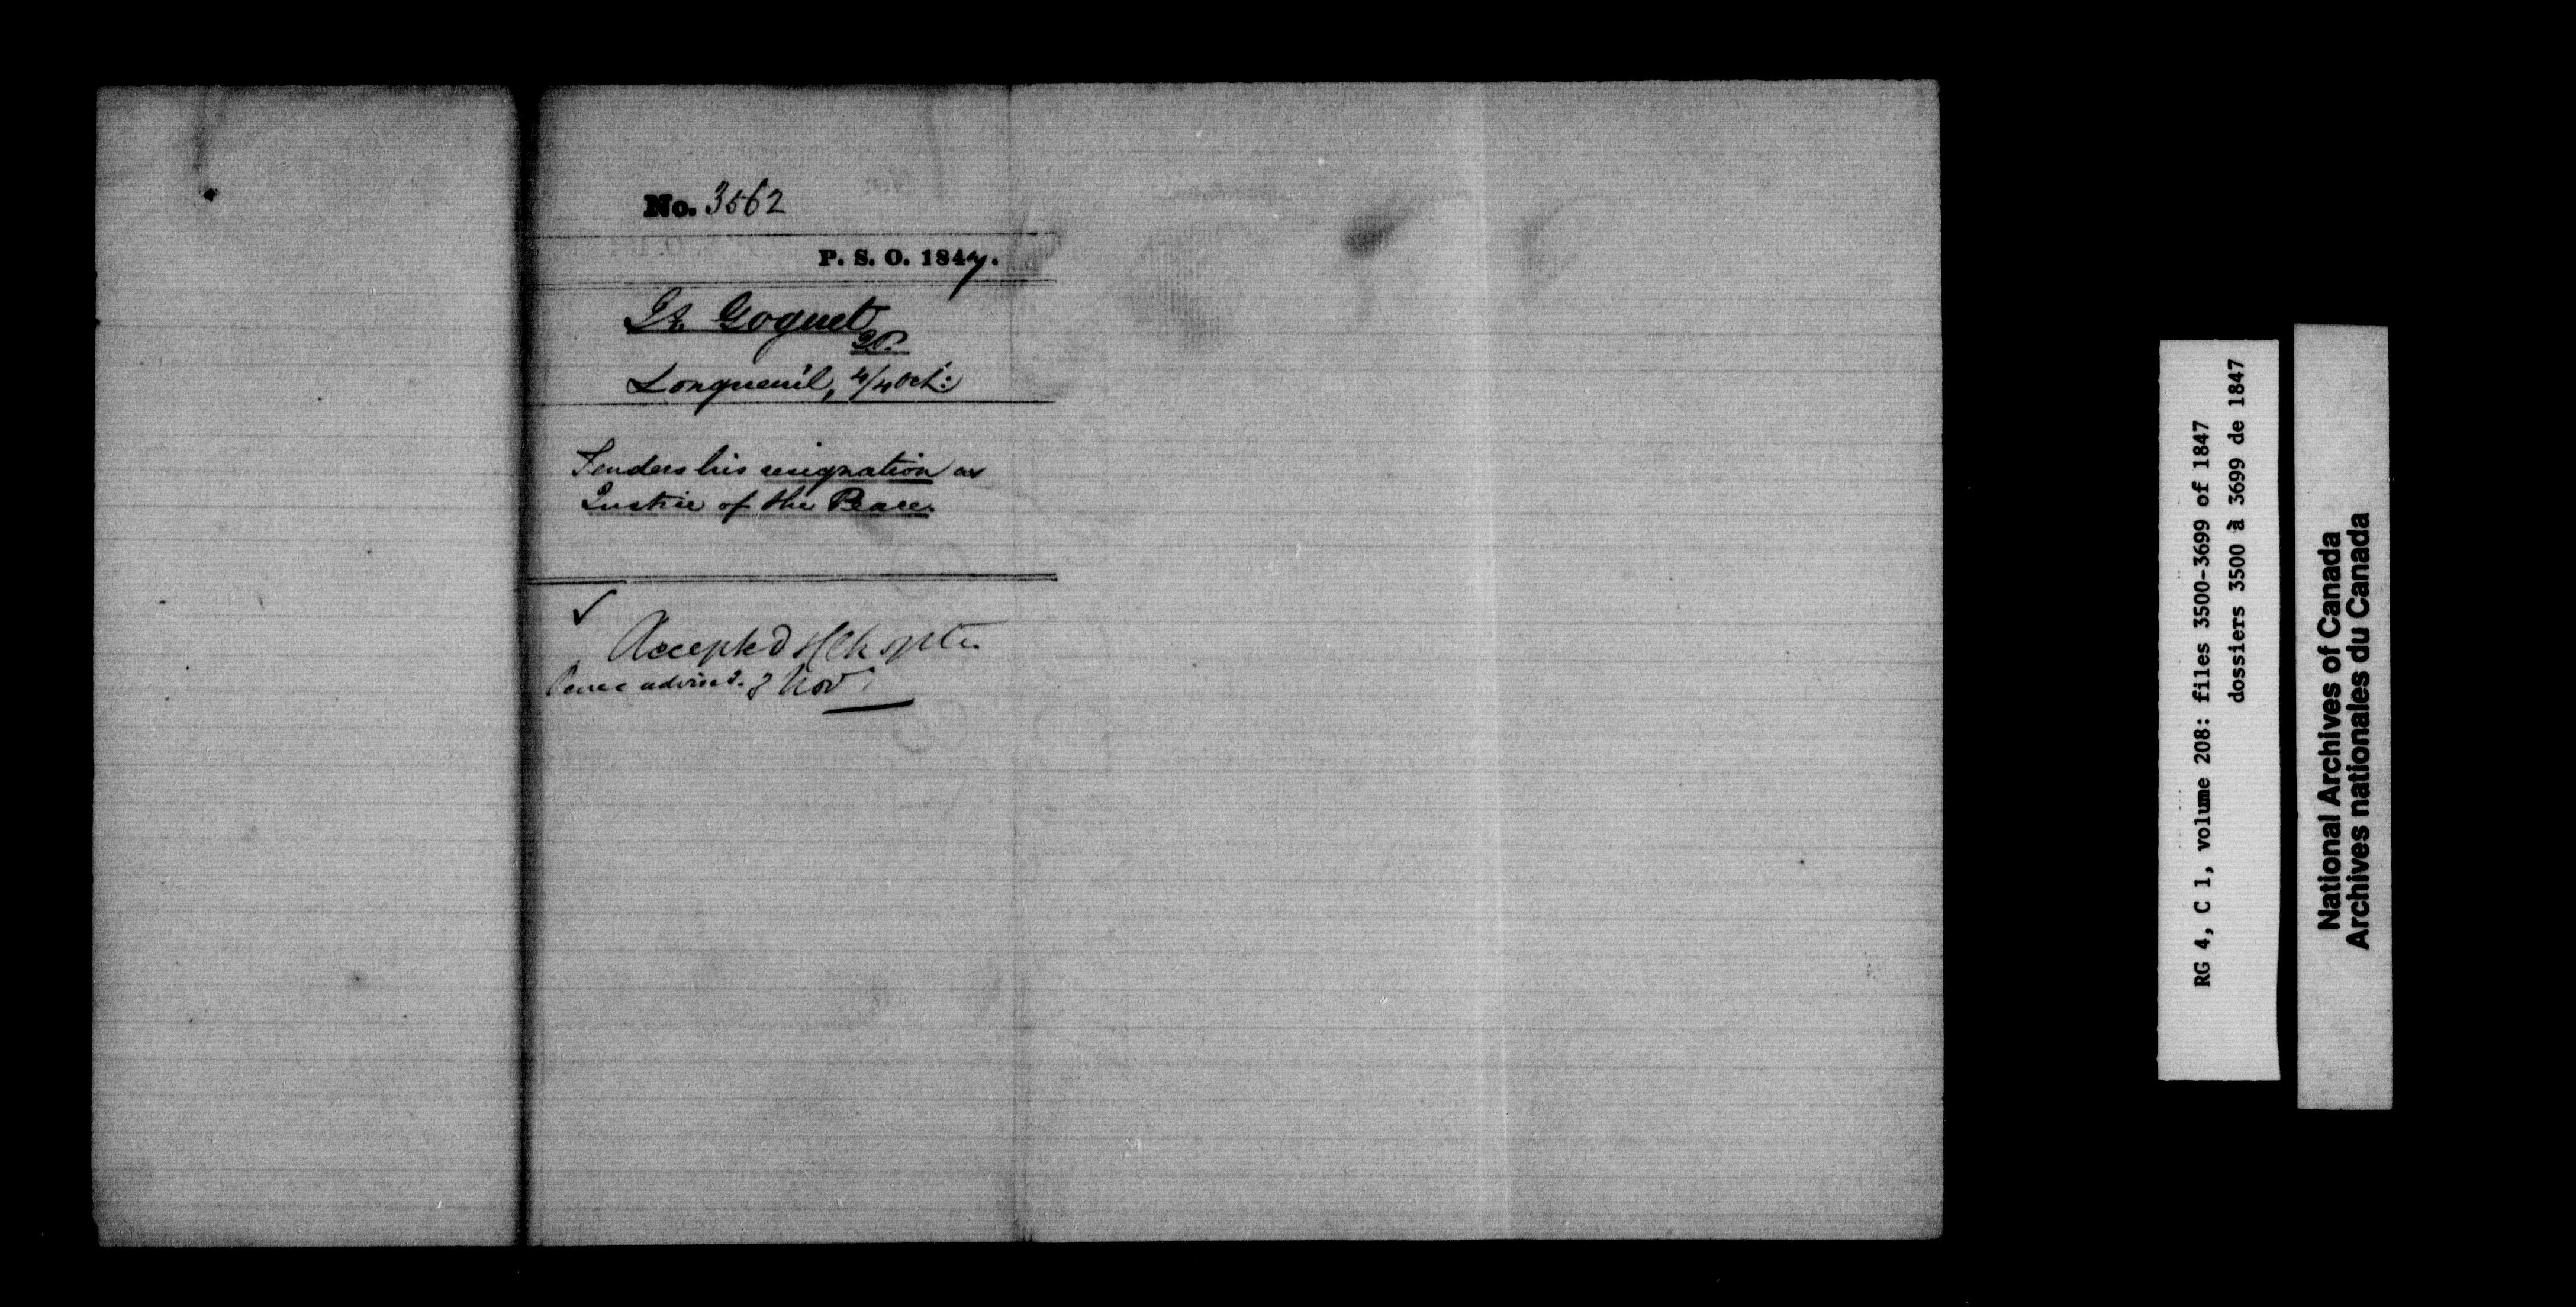 No. 3562
P. S. O. 1847.
Goguet
J.P.
Longueuil, 4/4 Oct:
Tenders his resignation as
Justice of the Peace
✓
Accepted
advised. Nov
RG 4, C 1, volume 208: files 3500-3699 of 1847
dossiers 3500 à 3699 de 1847
National Archives of Canada
Archives nationales du Canada